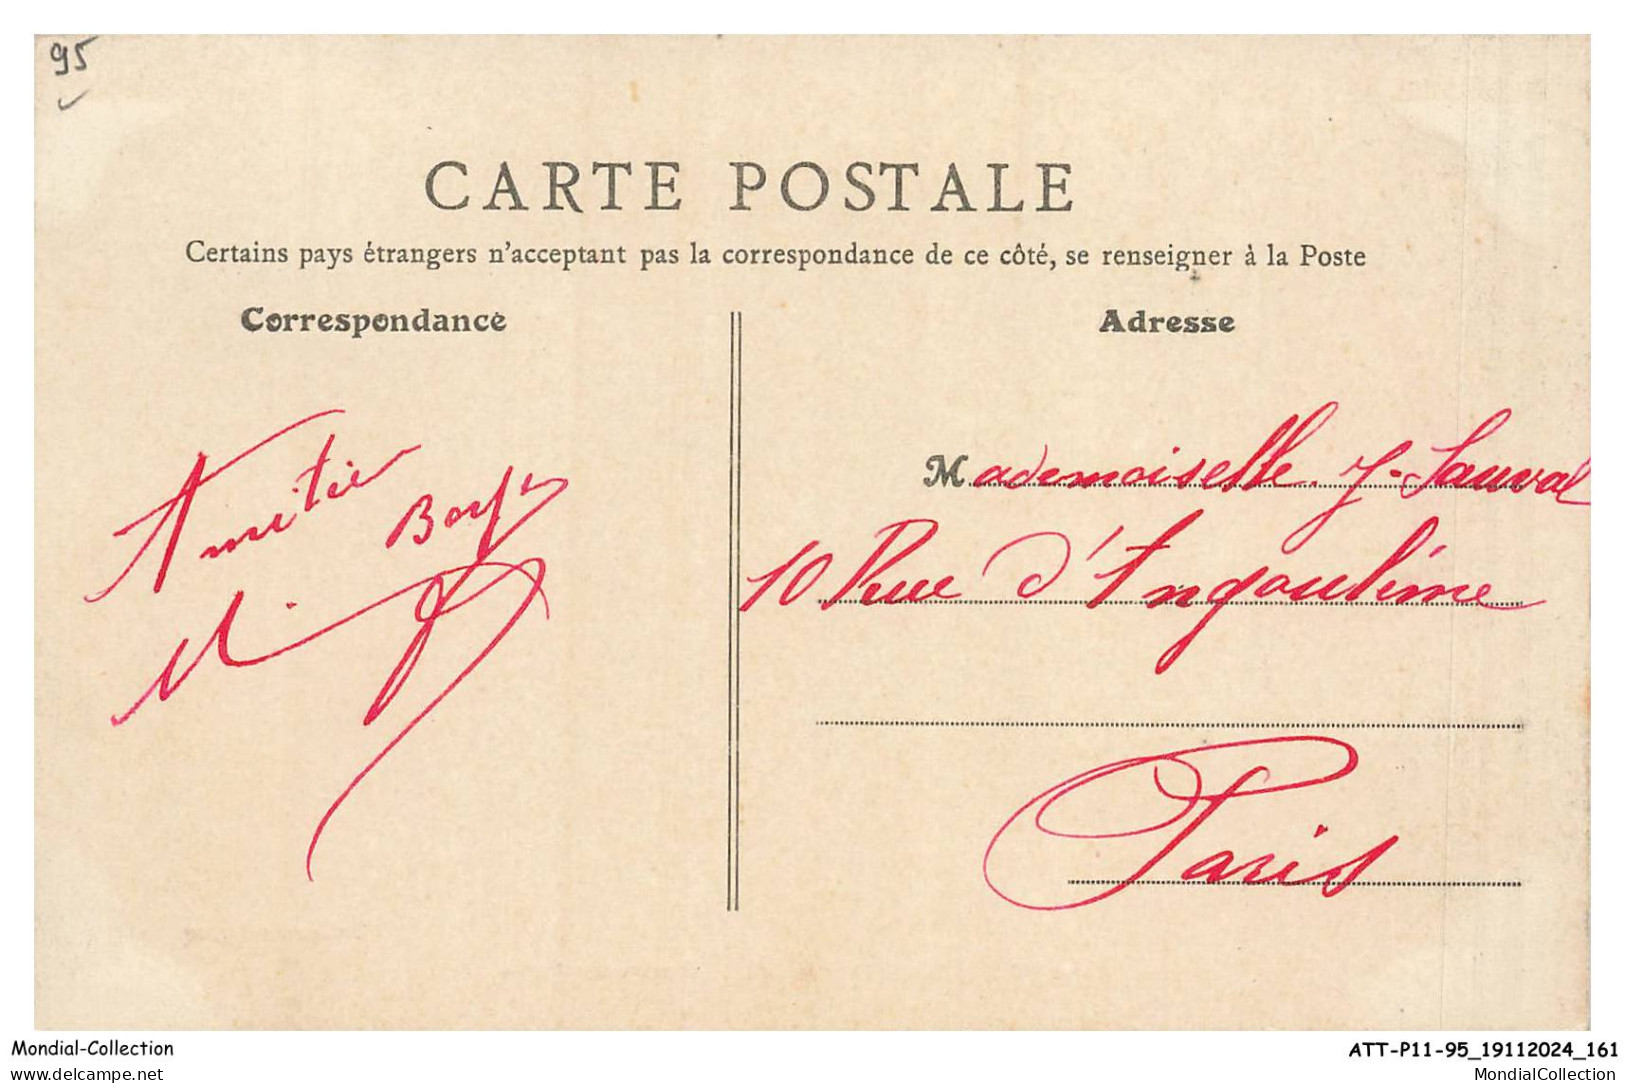 95
CARTE POSTALE
Certains pays étrangers n'acceptant pas la correspondance de ce côté, se renseigner à la Poste
Correspondance
Adresse
Amitié
Mademoiselle J. Sauval
10 Rue d'Angoulème
Paris
Mondial-Collection
ATT-P11-95_19112024_161
www.delcampe.net
MondialCollection